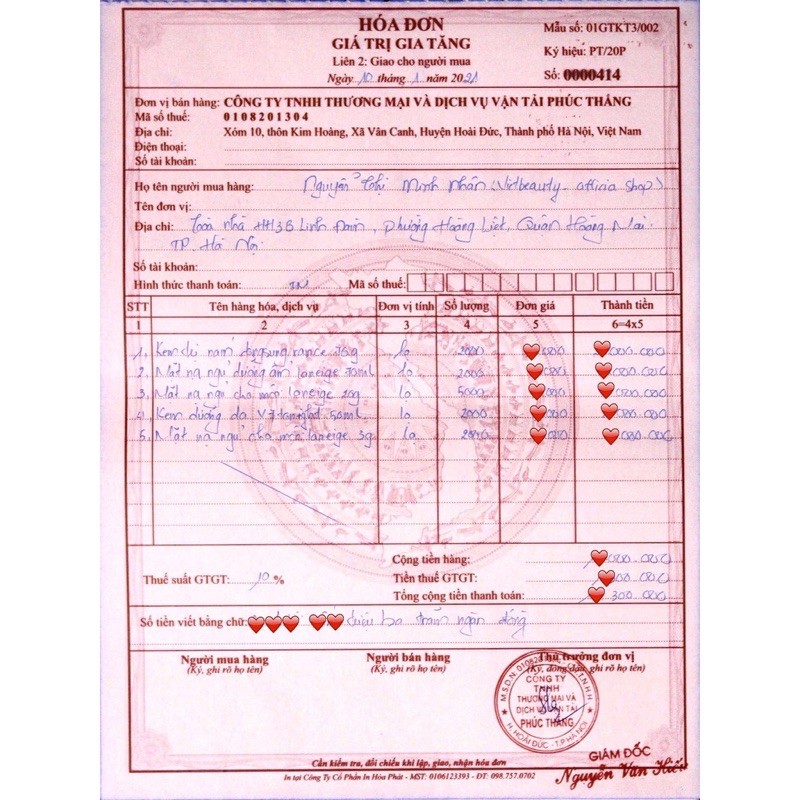 HÓA ĐƠN
GIÁ TRỊ GIA TĂNG
Liên 2: Giao cho người mua
Ngày 10 tháng 1 năm 2021
Mẫu số: 01GTKT3/002
Ký hiệu: PT/20P
Số: 0000414
Đơn vị bán hàng: CÔNG TY TNHH THƯƠNG MẠI VÀ DỊCH VỤ VẬN TẢI PHÚC THẮNG
Mã số thuế: 0108201304
Địa chỉ: Xóm 10, thôn Kim Hoàng, Xã Vân Canh, Huyện Hoài Đức, Thành phố Hà Nội, Việt Nam
Điện thoại:
Số tài khoản:
Họ tên người mua hàng: Nguyễn Thị Minh Nhân (Vietbeauty officia shop)
Tên đơn vị:
Địa chỉ: Tòa nhà HH3B Linh Đàm, Phường Hoàng Liệt, Quận Hoàng Mai
TP. Hà Nội
Số tài khoản:
Hình thức thanh toán: TM Mã số thuế:
STT Tên hàng hóa, dịch vụ Đơn vị tính Số lượng Đơn giá Thành tiền
1 2 3 4 5 6=4x5
1. Kem dongsung rance lọ 2000 000 000.000
2. Mặt nạ ngủ dưỡng ẩm laneige 70ml lọ 2000 000 000.000
3. Mặt nạ ngủ cho môi laneige 20g lọ 5000 000 000.000
4. Kem dưỡng da V7 50ml lọ 2000 000 000.000
5. Mặt nạ ngủ cho môi laneige 3g lọ 2000 000 000.000
Cộng tiền hàng: 000.000
Thuế suất GTGT: 10 % Tiền thuế GTGT: 00.000
Tổng cộng tiền thanh toán: 300.000
Số tiền viết bằng chữ: triệu ba trăm ngàn đồng
Người mua hàng Người bán hàng Thủ trưởng đơn vị
(Ký, ghi rõ họ tên) (Ký, ghi rõ họ tên) (Ký, đóng dấu, ghi rõ họ tên)
CÔNG TY
TNHH
THƯƠNG MẠI VÀ
DỊCH VỤ VẬN TẢI
PHÚC THẮNG
H. HOÀI ĐỨC - T.P HÀ NỘI
GIÁM ĐỐC
Nguyễn Văn Hiếu
Cần kiểm tra, đối chiếu khi lập, giao, nhận hóa đơn
In tại Công Ty Cổ Phần In Hòa Phát - MST: 0106123393 - ĐT: 098.757.0702